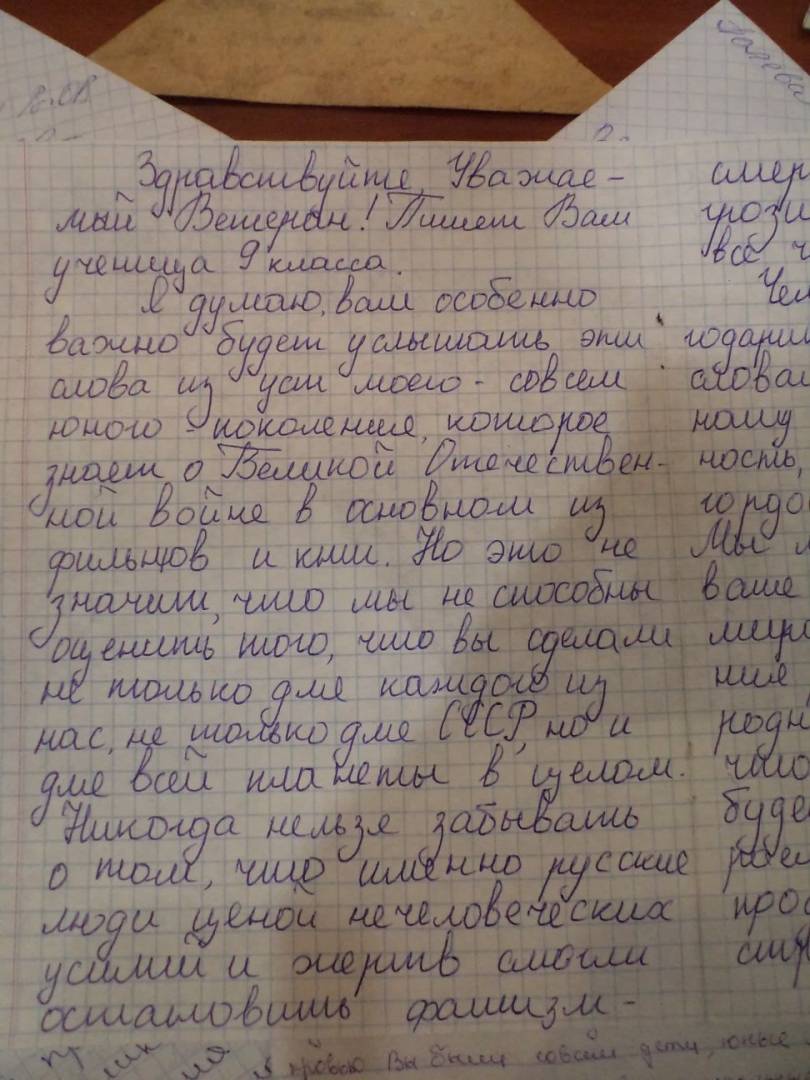 Здравствуйте, Уважае-
мый Ветеран! Пишет Вам
ученица 9 класса.
Я думаю, вам особенно
важно будет услышать эти
слова из уст моего - совсем
юного - поколения, которое
знает о Великой Отечествен-
ной войне в основном из
фильмов и книг. Но это не
значит, что мы не способны
оценить того, что вы сделали
не только для каждого из
нас, не только для СССР, но и
для всей планеты в целом.
Никогда нельзя забывать
о том, что именно русские
люди ценой нечеловеческих
усилий и жертв смогли
остановить фашизм -
смер
грози
всё ч
Чем
словам
ному
ность,
гордо
Мы
ваше
миро
ние
родн
что
буде
прос
Вы были совсем дети, юные